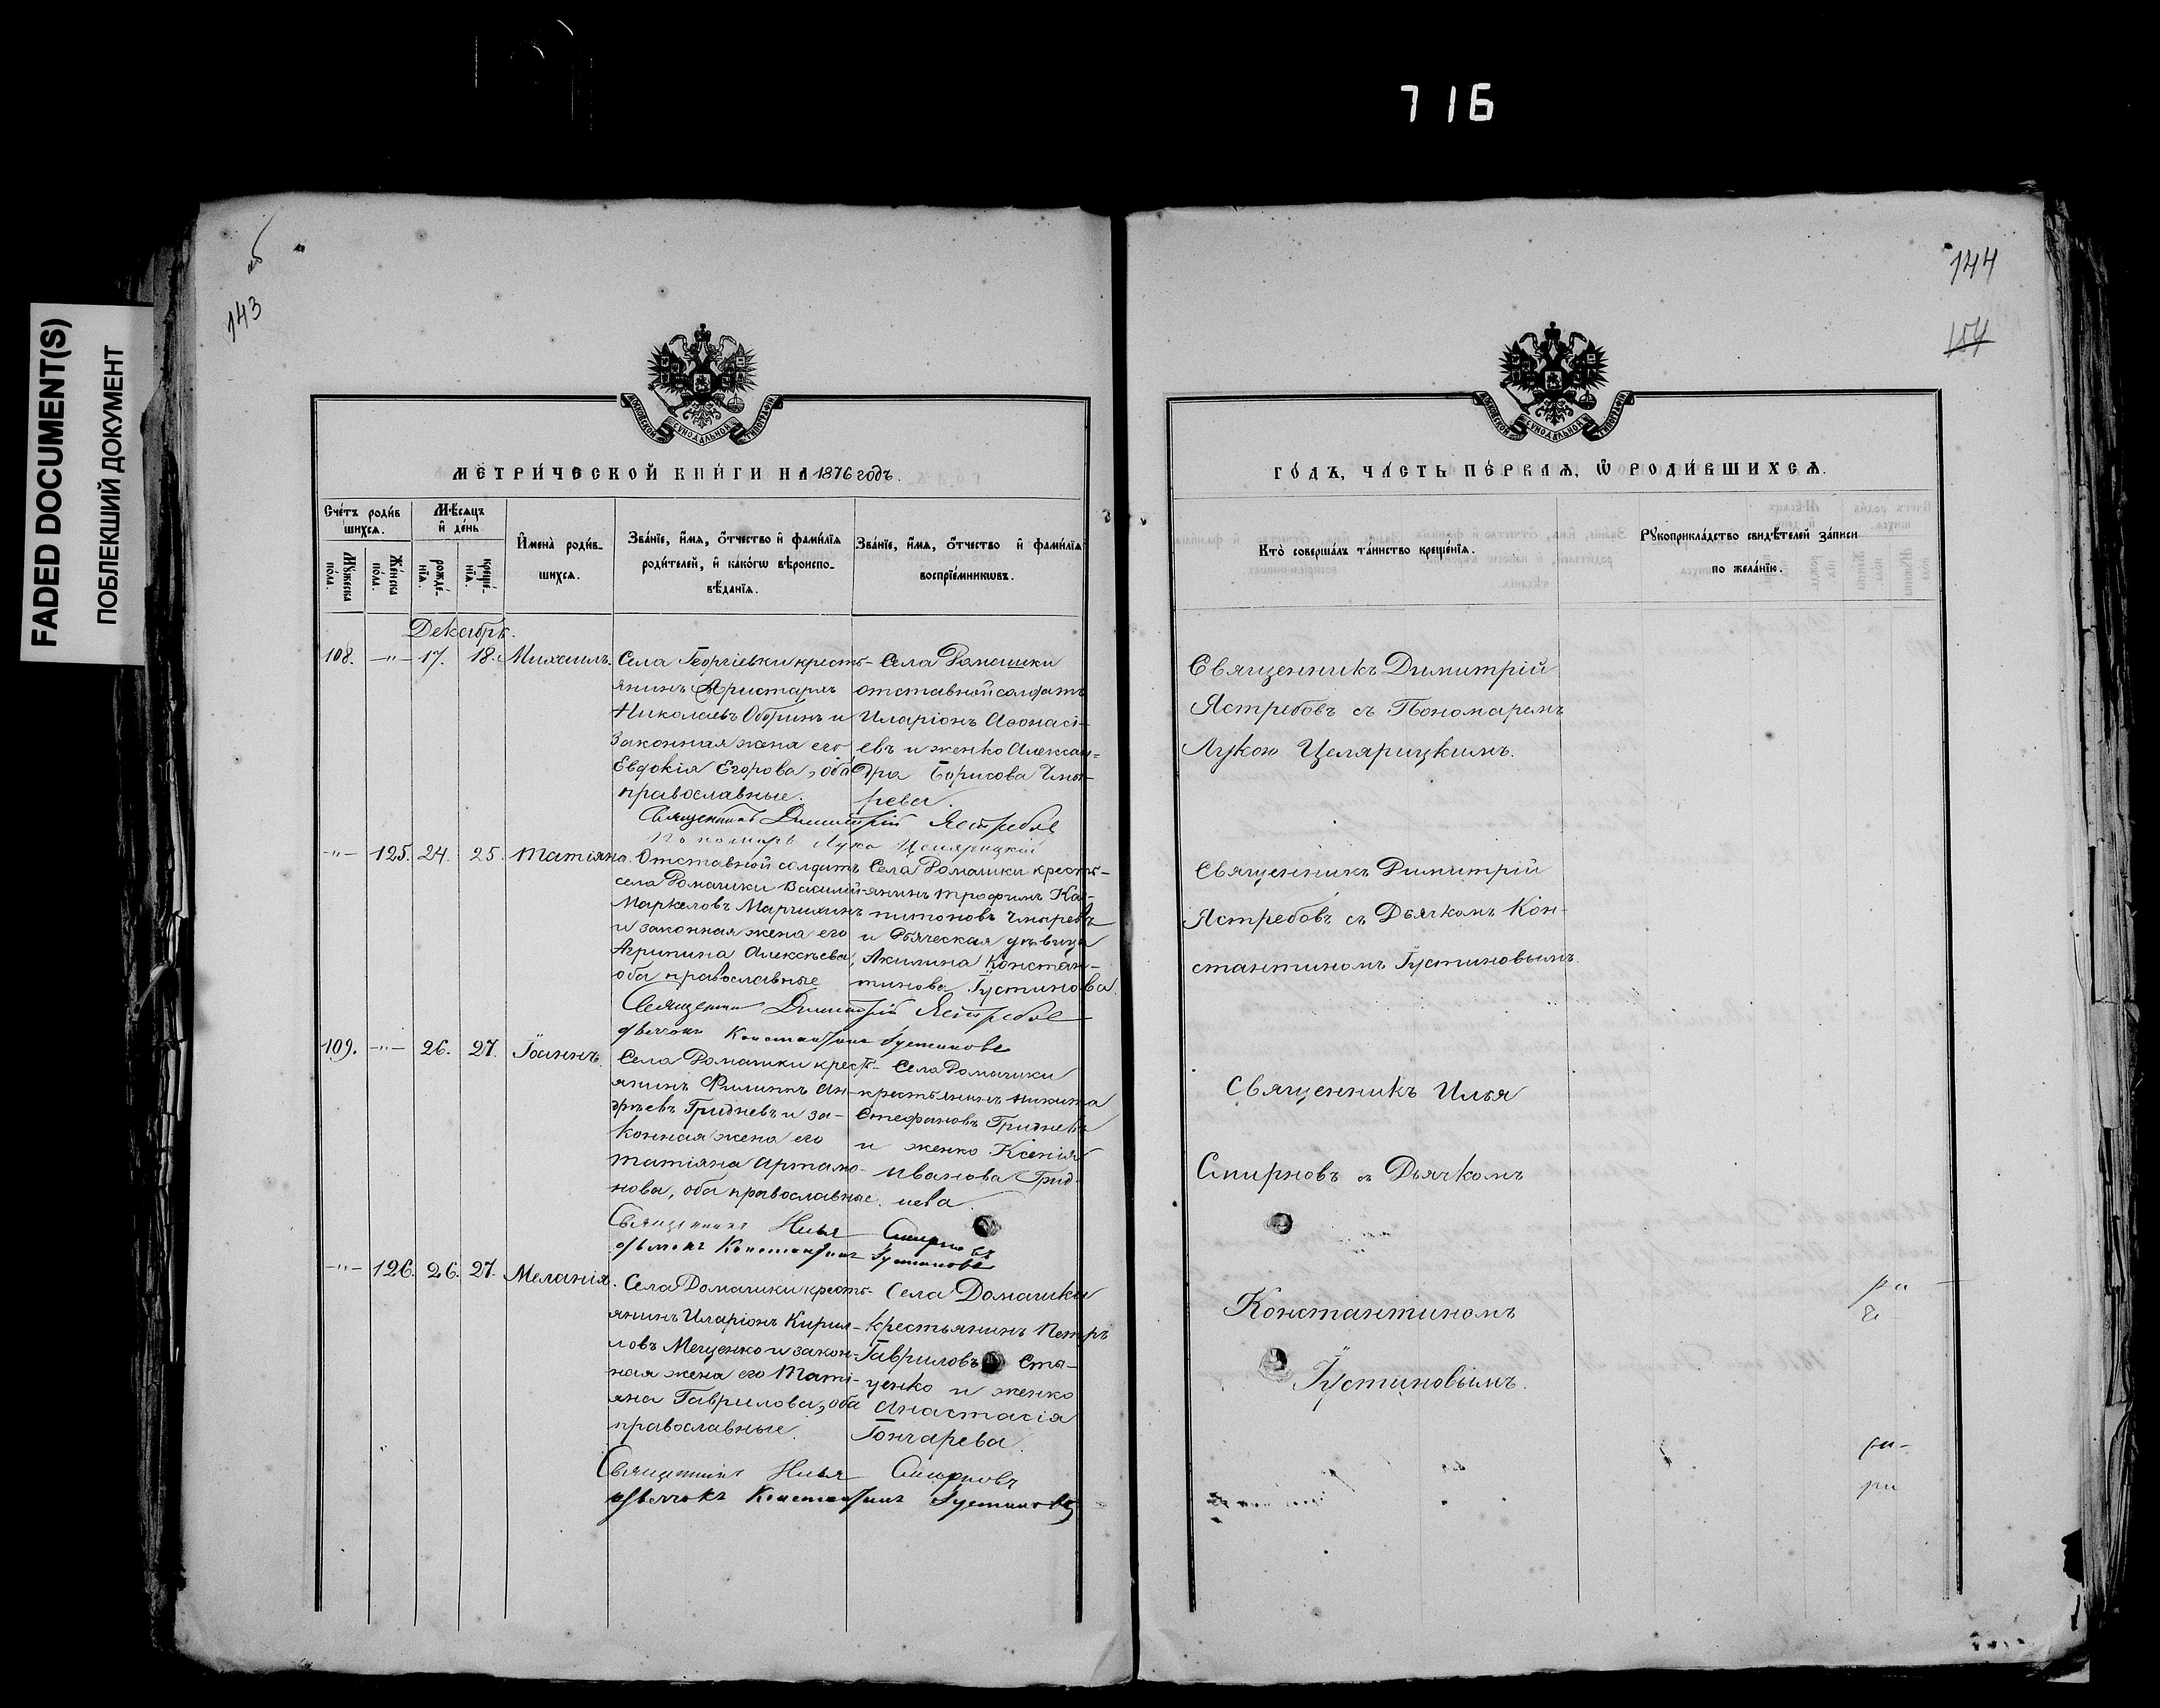 716
FADED DOCUMENT(S)
ПОБЛЕКШИЙ ДОКУМЕНТ
об
143
144
154
МОСКОВСКОЙ СѴНОДАЛЬНОЙ ТИПОГРАФІИ
МЕТРИ́ЧЕСКОЙ КНИ́ГИ НА 1876 годъ.
Сче́тъ роди́в
шихсѧ.
Мѣ́сѧцъ
и҆ де́нь
Мꙋ́жеска
по́ла.
Же́нска
по́ла.
рожде́-
нїѧ.
креще́-
нїѧ.
И҆мена̀ роди́в-
шихсѧ.
Зва́нїе, и҆́мѧ, о҆́тчество и҆ фами́лїѧ
роди́телей, и҆ како́гѡ вѣроиспо-
вѣ́данїѧ.
Зва́нїе, и҆́мѧ, о҆́тчество и҆ фами́лїѧ
воспрїе́мникѡвъ.
Декабрь.
108. —"— 17. 18. Михаилъ.
Села Георгіевки кресть-
янинъ Аристархъ
Николаевъ Оборинъ и
законная жена его
Евдокія Егорова, оба
православные.
Села Домашки
отставной солдатъ
Иларіонъ Аѳонась-
евъ и женка Алексан-
дра Борисова Чмы-
рева.
Священникъ Димитрій Ястребовъ
Пономарь Лука Целярицкій
—"— 125. 24. 25. Татіяна.
Отставной солдатъ
села Домашки Василій
Маркеловъ
и законная жена его
Агрипина Алексѣева,
оба православные
Села Домашки кресть-
янинъ Трофимъ Ка-
питоновъ Чмыревъ
и дьяческая дѣвица
Акилина Констан-
тинова Густинова.
Священникъ Димитрій Ястребовъ
дьячокъ Константинъ Густиновъ
109. —"— 26. 27. Іоаннъ.
Села Домашки кресть-
янинъ Филиппъ Ан-
дрѣевъ Гридневъ и за-
конная жена его
Татіяна Артамо-
нова, оба православные.
Села Домашки
крестьянинъ Никита
Стефановъ Гридневъ
и женка Ксенія
Иванова Грид-
нева.
Священникъ Илья Смирновъ
дьячокъ Константинъ Густиновъ
—"— 126. 26. 27. Меланія.
Села Домашки кресть-
янинъ Иларіонъ Кирил-
ловъ Мещенко и закон-
ная жена его Тати-
яна Гаврилова, оба
православные.
Села Домашки
крестьянинъ Петръ
Гавриловъ Сты-
ценко и женка
Анастасія
Гончарева.
Священникъ Илья Смирновъ
дьячокъ Константинъ Густиновъ
МОСКОВСКОЙ СѴНОДАЛЬНОЙ ТИПОГРАФІИ
ГО́ДЪ, ЧА́СТЬ ПЕ́РВАѦ, Ѡ҆ РОДИ́ВШИХСѦ.
Кто̀ соверша́лъ та́инство креще́нїѧ.
Рꙋкоприкла́дство свидѣ́телей за́писи
по жела́нїю.
Священникъ Димитрій
Ястребовъ съ Пономаремъ
Лукою Целярицкимъ.
Священникъ Димитрій
Ястребовъ съ Дьячкомъ Кон-
стантиномъ Густиновымъ.
Священникъ Илья
Смирновъ съ Дьячкомъ
Константиномъ
Густиновымъ.